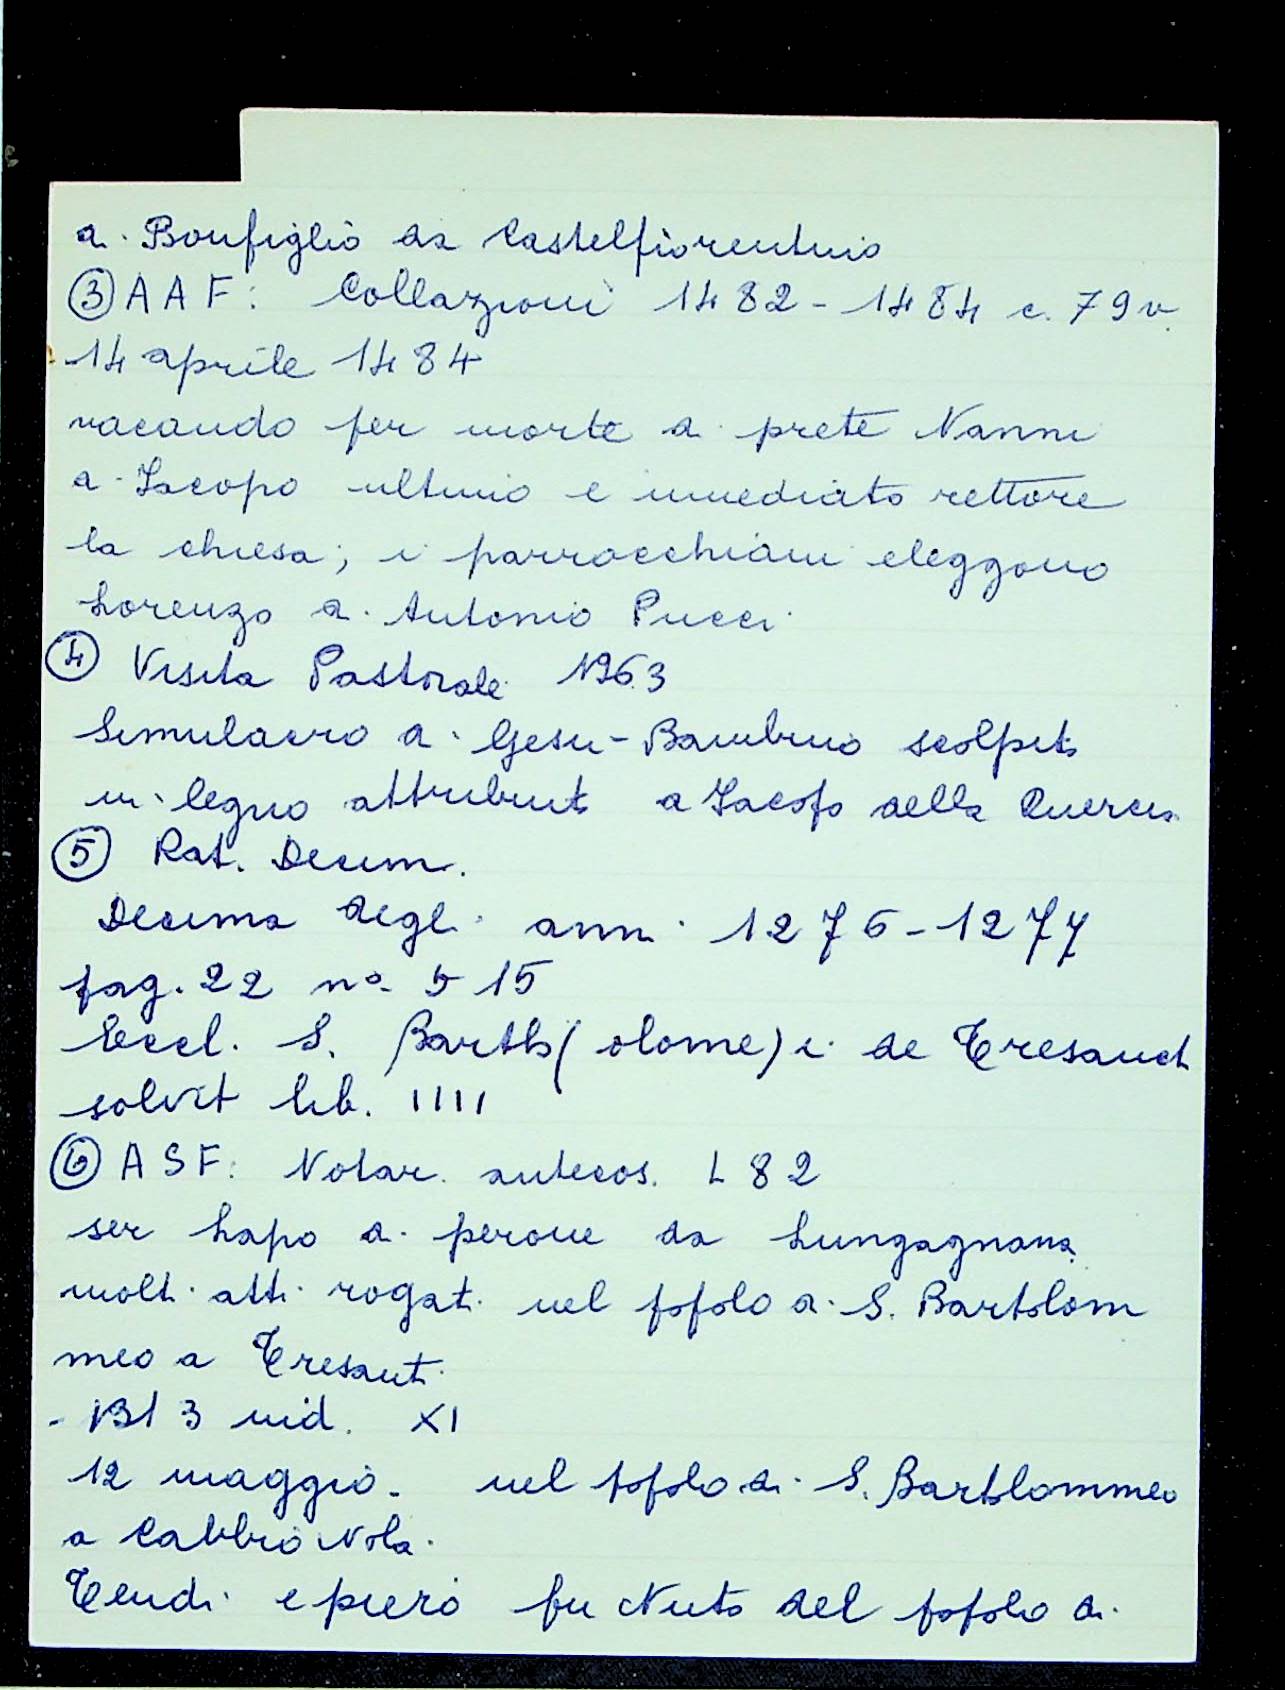 di Bonfiglio da Castelfiorentino
③ AAF: Collazioni 1482-1484 c. 79v.
-14 aprile 1484
vacando per morte di prete Nanni
di Iacopo ultimo e immediato rettore
la chiesa; i parrocchiani eleggono
Lorenzo di Antonio Pucci
④ Visita Pastorale 1963
Simulacro di Gesu-Bambino scolpito
in legno attribuito a Iacopo della Quercia
⑤ Rat. Decim.
Decima degli anni 1276-1277
pag. 22 no. 515
Eccl. S. Bartho(olome)i de Tresancti
solvit lib. IIII
⑥ ASF: Notar. antecos. L 82
ser Lapo di perone da Lungagnana
molti atti rogati nel popolo di S. Bartolom
meo a Tresanti
- 1313 ind. XI
12 maggio. nel popolo di S. Bartolommeo
a Cabbiavola.
Tendi e piero fu Nuto del popolo di